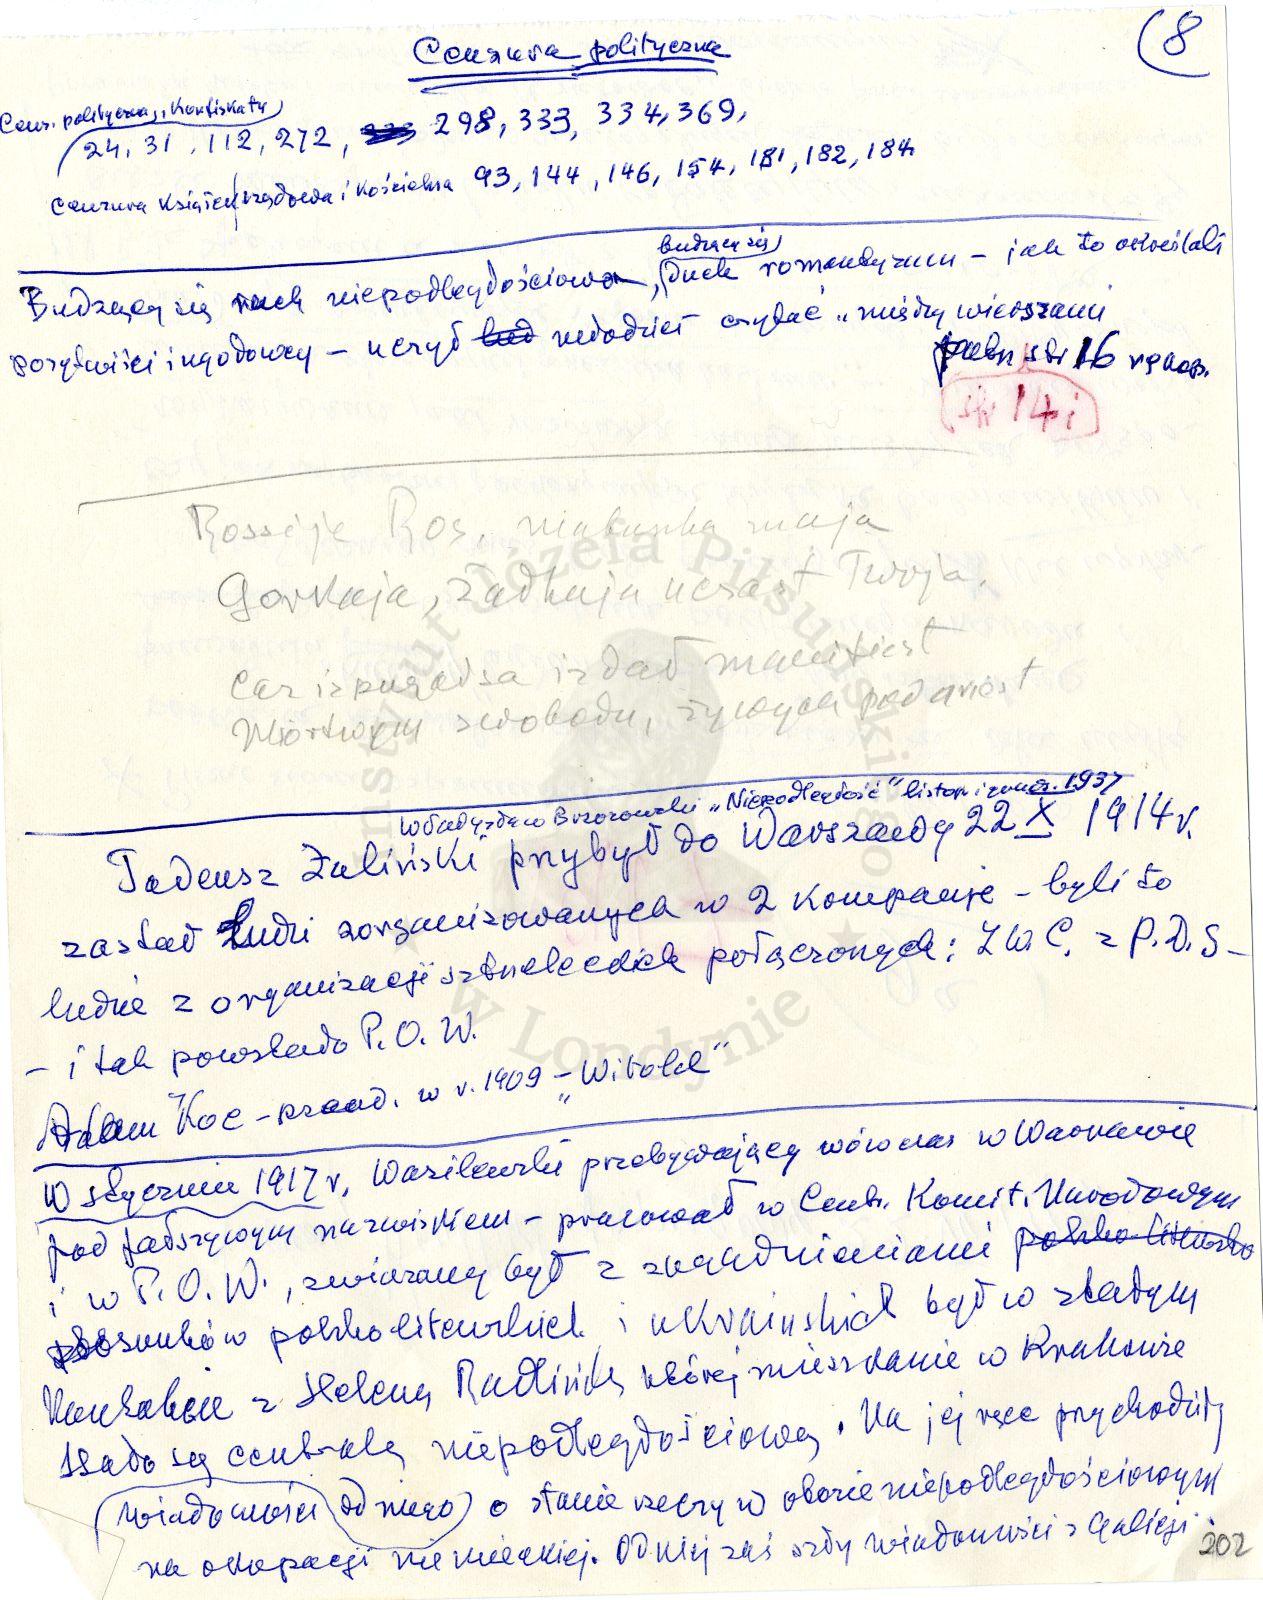 (8
Cenzura polityczna
Cenz. polityczna, Konfiskaty
24, 31, 112, 272, 298, 333, 334, 369,
Cenzura Książek rządowa i Kościelna 93, 144, 146, 154, 181, 182, 184
budzący się
Budzący się ruch niepodległościowo, duch romantyzmu – jak to określali
pozytwiści i ugodowcy – uczył młodzież czytać „między wierszami
str 16 rękop.
str 14 i
Rossija Ros, maja
Gorkaja, Twoja.
Car ispugałsa izdał manifiest
Miortwym swobodu, żywych pod arest
Władysław Brzozowski „Niepodległość" listop i grudz. 1937
Tadeusz Żuliński przybył do Warszawy 22 X 1914 r.
zastał Ludzi zorganizowanych w 2 Kompanje – byli to
ludzie z organizacji strzeleckich połączonych: Z W C. z P.D.S –
– i tak powstało P. O. W.
Adam Koc – w r. 1909 – „Witold"
W styczniu 1917 r, Wasilewski przebywający wówczas w Warszawie
pod fałszywym nazwiskiem – pracował w Centr. Komit. Narodowym
i w P. O. W., związany był z zagadnieniami polsko-litewsko
stosunków polsko litewskich i ukraińskich był w stałym
Kontakcie z Heleną Radlińską której mieszkanie w Krakowie
stało się centralą niepodległościową. Na jej ręce przychodziły
wiadomości od niego o stanie rzeczy w obozie niepodległościowym
na okupacji niemieckiej. Od niej zaś szły wiadomości z Galicji.
202
Instytut Józefa Piłsudskiego
w Londynie